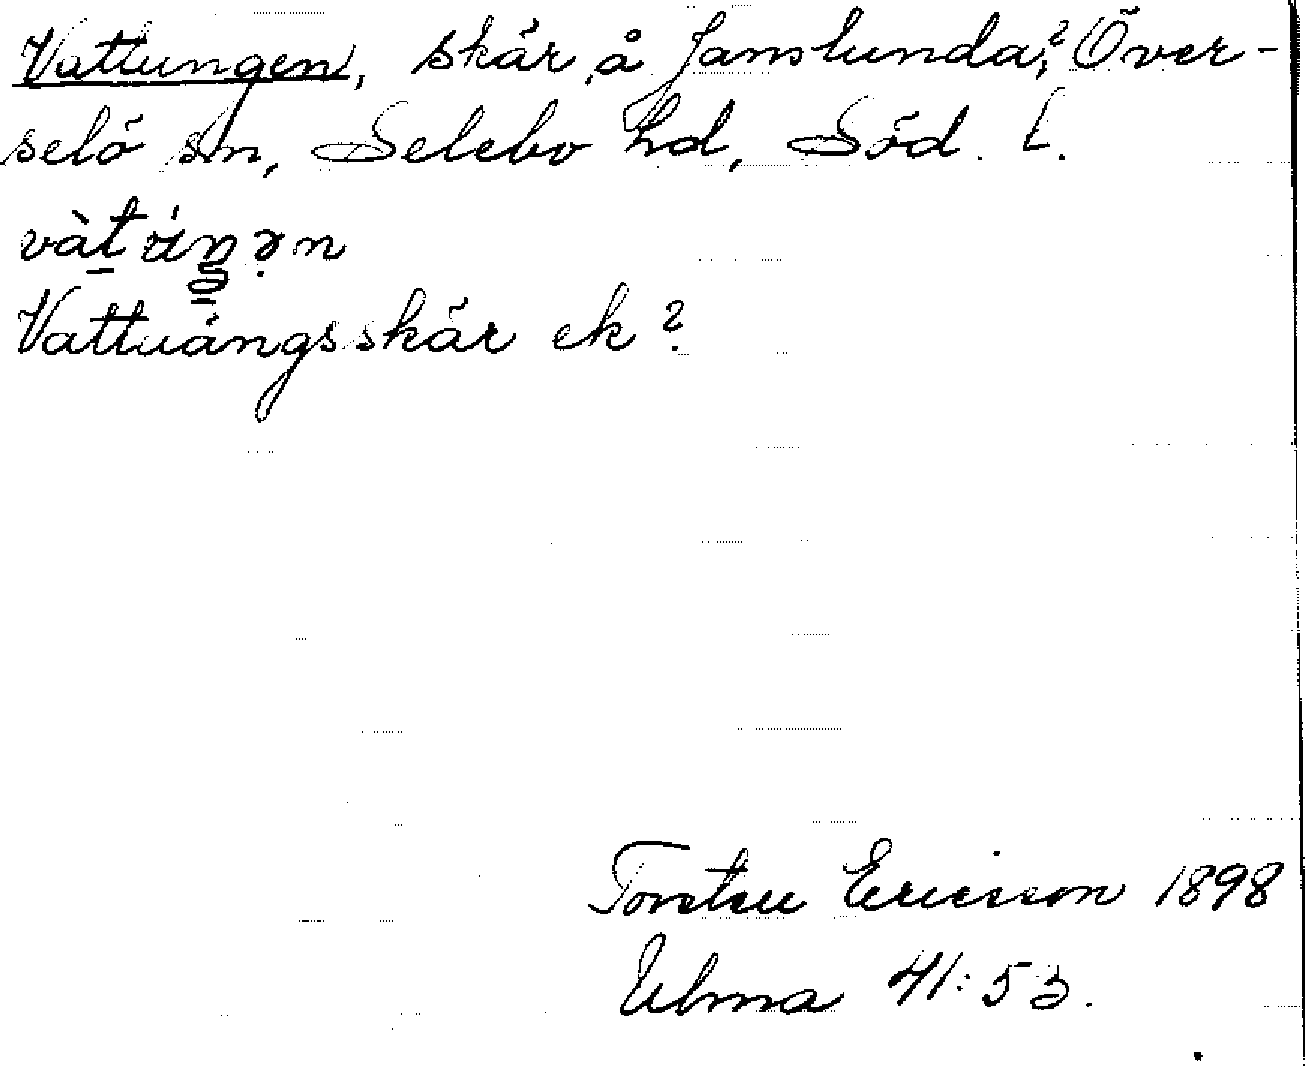 Vattungen, skär å Janslunda?, Över-
selö sn, Selebo hd, Söd. l.
Vattuängsskär ek?
Torsten Ericsson 1898
Ulma 41:53.